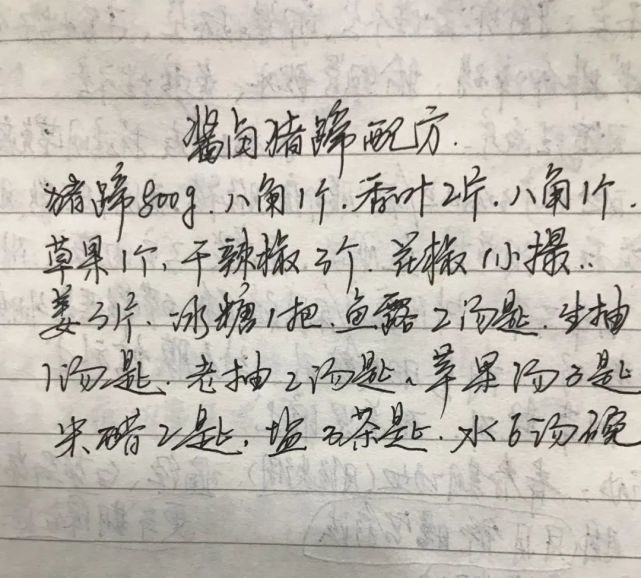 酱卤猪蹄配方.
猪蹄800g.八角1个.香叶2片.八角1个.
草果1个、干辣椒3个.花椒1小撮..
姜3片.冰糖1把.鱼露2汤匙.生抽
1汤匙.老抽2汤匙、苹果汤3匙
米醋2匙.盐3茶匙.水6汤碗